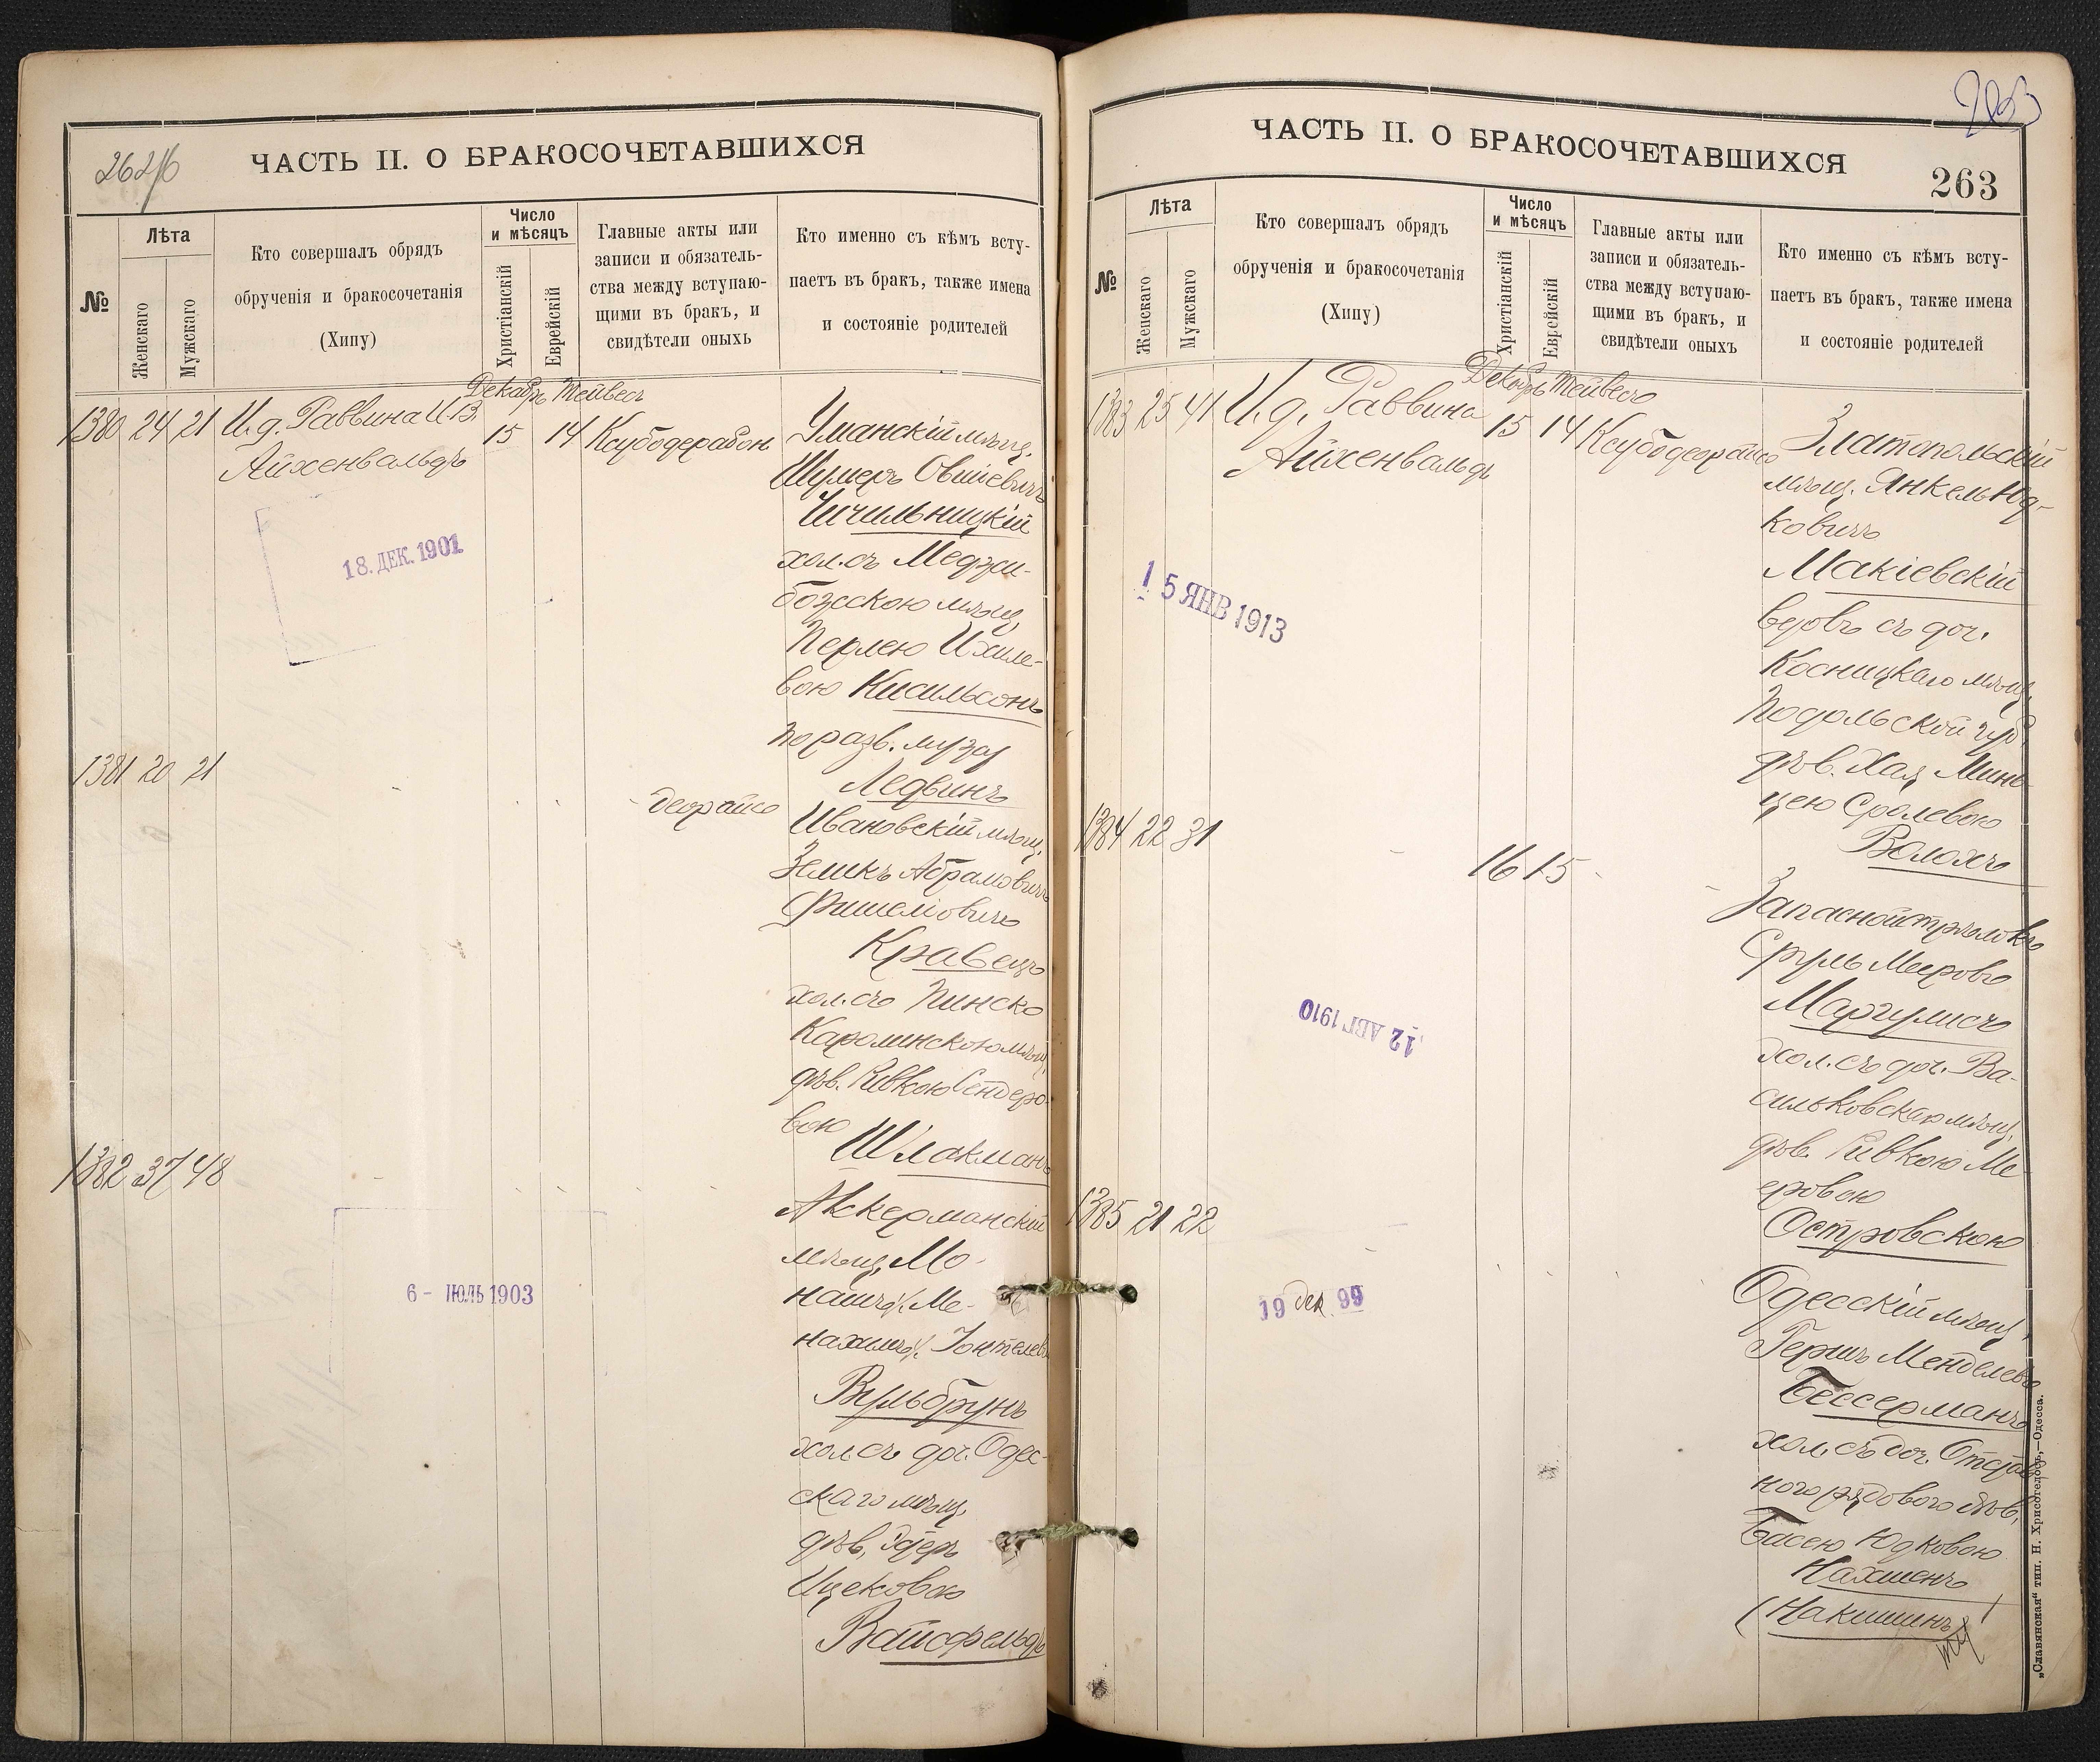 ЧАСТЬ II. О БРАКОСОЧЕТАВШИХСЯ
№
Лѣта
Женскаго
Мужскаго
Кто совершалъ обрядъ
обрученія и бракосочетанія
(Хипу)
Число
и мѣсяцъ
Христіанскій
Еврейскій
Главные акты или
записи и обязатель-
ства между вступаю-
щими въ бракъ, и
свидѣтели оныхъ
Кто именно съ кѣмъ всту-
паетъ въ бракъ, также имена
и состояніе родителей
Декабрь Тейвесъ
1380 24 21 И.д. Раввина И.З.
Айхенвальдъ
15 14
Уманскій мѣщ.
Шумеръ Овшіевичъ
Чичильницкій
хол. съ Меджи-
божскою мѣщ.
Перлею Ихиле-
вою Кисильсонъ
по разв. мужу
Ледвинъ
18. ДЕК. 1901
1381 20 21
деорайсо
Ивановскій мѣщ.
Зеликъ Абрамовичъ
Фишеліовичъ
Кравецъ
хол. съ Пинско
Каролинскою мѣщ.
дѣв. Ривкою Сендеро-
вою
Шлакманъ
1382 37 48
Аккерманскій
мѣщ. Мо-
нашъ/: Ме-
нахимъ/: Іонтелевъ
Вульбрунъ
хол. съ доч. Одес-
скаго мѣщ.
дѣв. Эстеръ
Ицековою
Вайсфельдъ
6 - ІЮЛЬ 1903
ЧАСТЬ II. О БРАКОСОЧЕТАВШИХСЯ
263
№
Лѣта
Женскаго
Мужскаго
Кто совершалъ обрядъ
обрученія и бракосочетанія
(Хипу)
Число
и мѣсяцъ
Христіанскій
Еврейскій
Главные акты или
записи и обязатель-
ства между вступаю-
щими въ бракъ, и
свидѣтели оныхъ
Кто именно съ кѣмъ всту-
паетъ въ бракъ, также имена
и состояніе родителей
Декабрь Тейвесъ
1383 25 41 И.д. Раввина
Айхенвальдъ
15 14 Ксубо деорайсо
Златопольскій
мѣщ. Янкель Юд-
ковичъ
Макіевскій
вдовъ съ доч.
Косницкаго мѣщ.
Подольской губ.
дѣв. Хая Минь-
цею Сролевою
Волохъ
1 5 ЯНВ 1913
1384 22 31
16 15
Запасной стрѣлокъ
Сруль Меировъ
Маргулисъ
хол. съ доч. Ва-
сильковскаго мѣщ.
дѣв. Ривкою Ме-
еровою
Островскою
12 АВГ 1910
1385 21 22
Одесскій мѣщ.
Гершъ Менделевъ
Бессерманъ
хол. съ доч. Отстав-
ного рядового дѣв.
Басею Юдковою
Нахшенъ
(Накшинъ)
19 дек 99
„Славянская“ тип. Н. Хрисогелосъ,—Одесса.